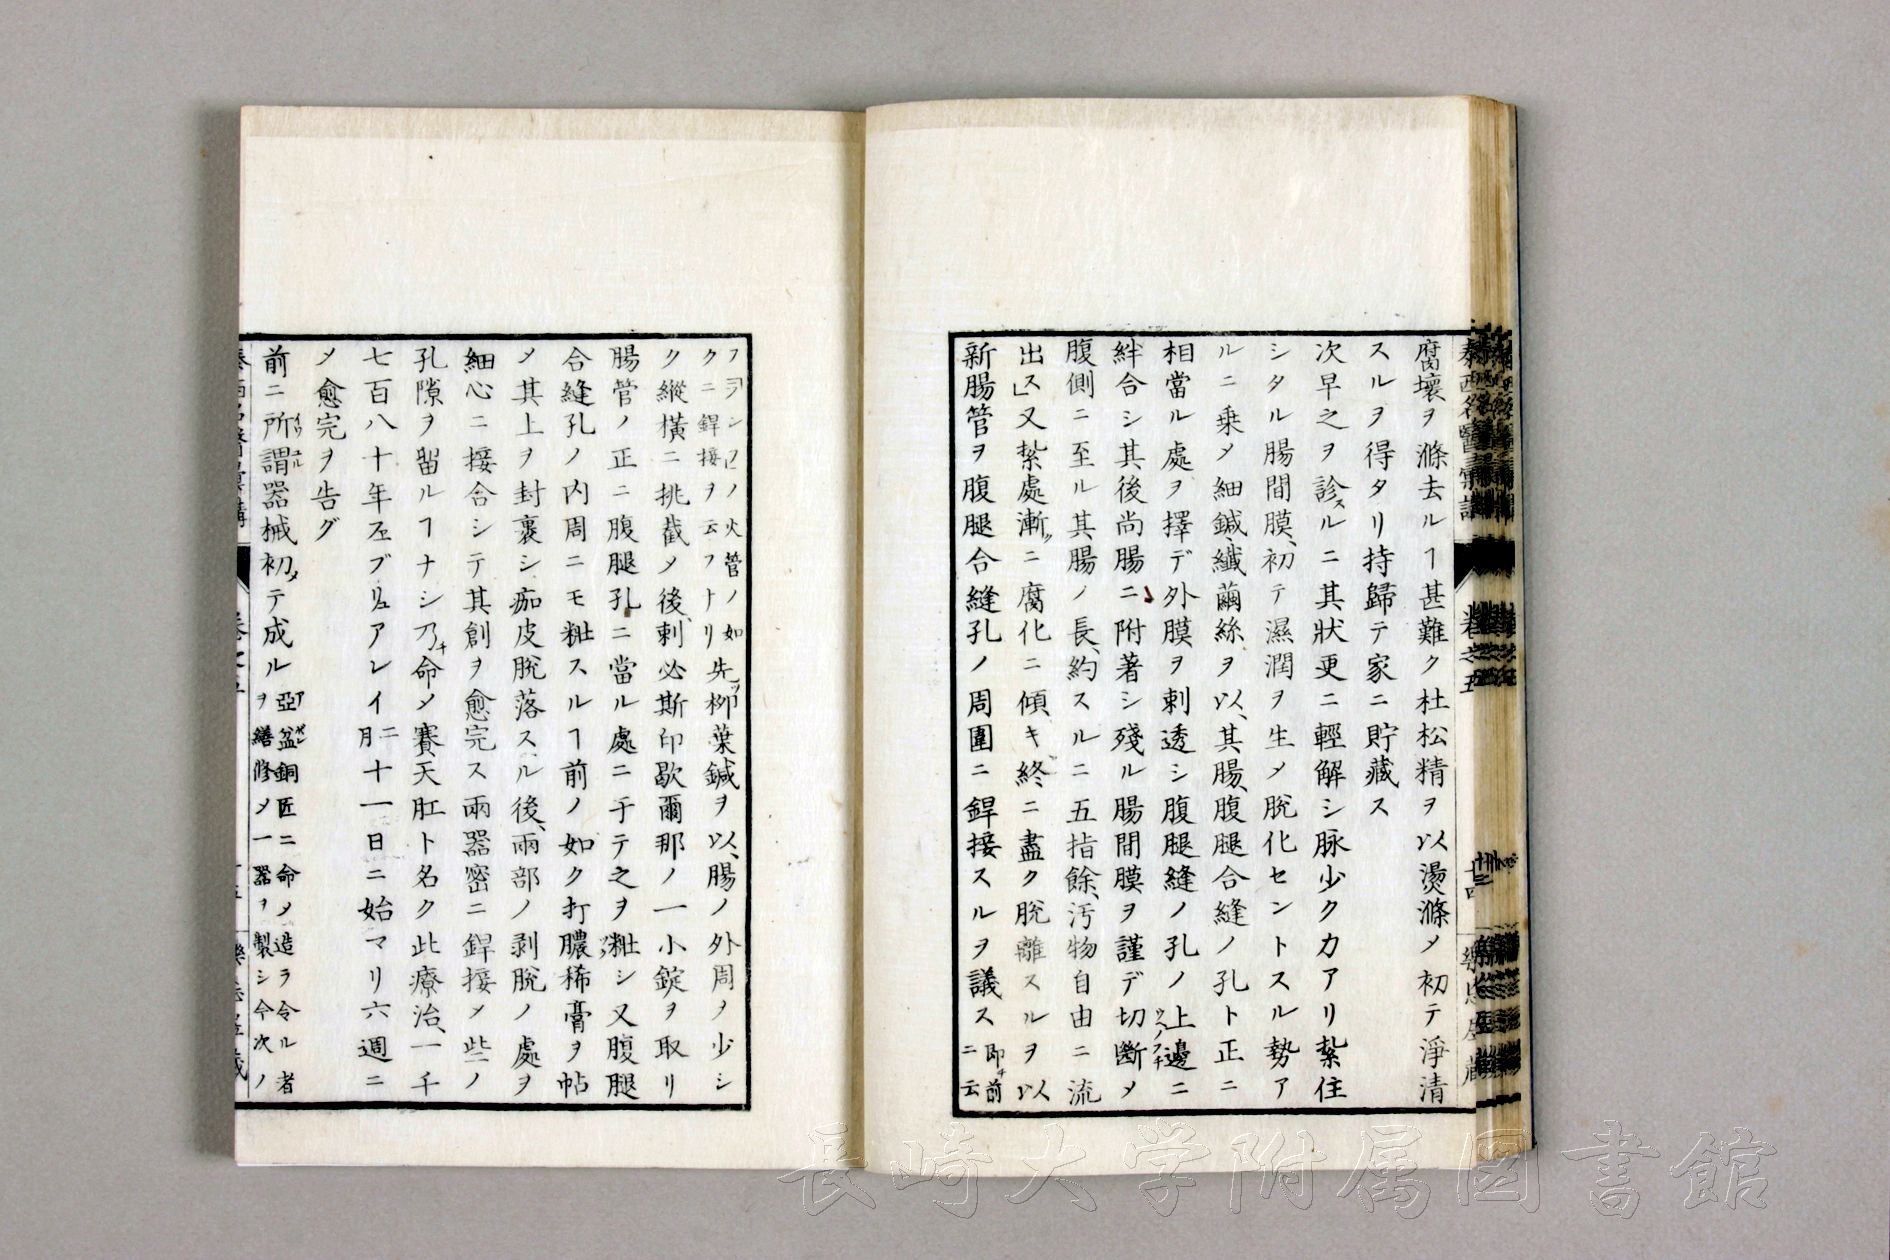 腐壞ヲ滌去ルヿ甚難ク杜松精ヲ以燙滌メ初テ淨清
スルヲ得タリ持歸テ家ニ貯藏ス
次早之ヲ診スルニ其狀更ニ輕解シ脉少ク力アリ紮住
シタル腸間膜初テ濕潤ヲ生メ脫化セントスル勢ア
ルニ乗メ細鍼纖繭絲ヲ以其腸腹腿合縫ノ孔ト正ニ
相當ル處ヲ擇デ外膜ヲ刺透シ腹腿縫ノ孔ノ上邊ニ
絆合シ其後尚腸ニ附著シ殘ル腸間膜ヲ謹デ切斷メ
腹側ニ至ル其腸ノ長約スルニ五指餘汚物自由ニ流
出ス又紮處漸ニ腐化ニ傾キ終ニ盡ク脫離スルヲ以
新腸管ヲ腹腿合縫孔ノ周圍ニ銲接スルヲ議ス 即チ前ニ云
フヲシロノ火管ノ如
クニ銲接ヲ云フトリ先柳葉鍼ヲ以腸ノ外周ヲ少シ
ク縱橫ニ挑截メ後刺必斯印歇爾那ノ一小錠ヲ取リ
腸管ノ正ニ腹腿孔ニ當ル處ニ于テ之ヲ粃シ又腹腿
合縫孔ノ內周ニモ粃スルヿ前ノ如ク打膿稀膏ヲ帖
メ其上ヲ封裹シ痂皮脫落スル後兩部ノ剥脫ノ處ヲ
細心ニ接合シテ其創ヲ愈完ス兩器密ニ銲接メ些ノ
孔隙ヲ留ルヿナシ乃チ命メ賽天肛ト名ク此療治一千
七百八十年フブリュアレイ二月十一日ニ始マリ六週ニ
メ愈完ヲ告グ
前ニ所謂器械初メテ成ル 亞盆銅匠ニ命メ造ラ令ル者
ヲ繕修メ一器ヲ製シ今次ノ
泰西名醫彙講
卷之五
長崎大学附属図書館